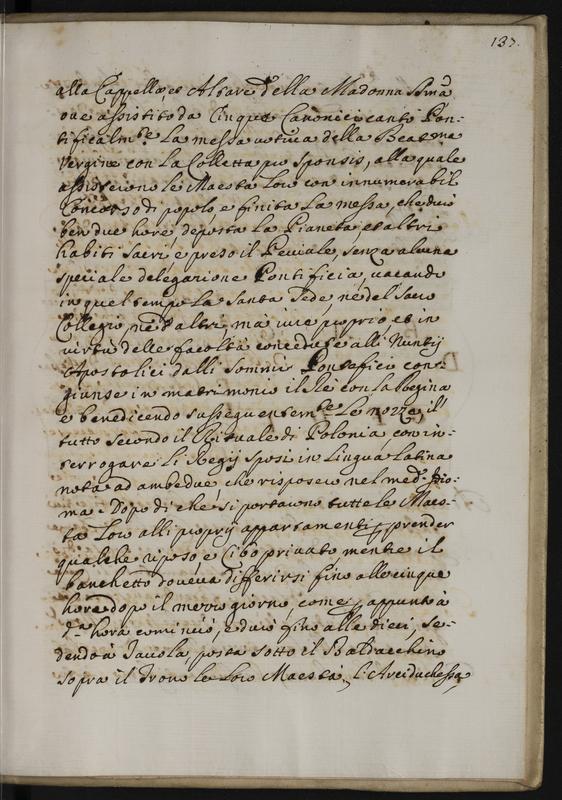 137.
alla Cappella et Altare della Madonna SSma
ove assistito da Cinque Canonici cantò Pon-
tificalmte La messa votiva della Beatma
Vergine con La Colletta pro sponsis, alla quale
assisterono le Maestà Loro con innumerabil
Concorso di popolo e finita La messa, che durò
ben due hore, deposta La Pianeta, et altri
habiti sacri, e preso il Peviale, senza alcuna
speciale delegazione Pontificia, vacando
in quel tempo La Santa Sede, nè del Sacro
Collegio, nè d'altri, mà iure proprio, et in
virtù delle facoltà concedute alli Nuntij
Apostolici dalli Sommi Pontefici con-
giunse in matrimonio il Rè con la Regina
e benedicendo sussequentemte Le nozze, il
tutto secondo il Rituale di Polonia con in-
terrogare Li Regij sposi in Lingua Latina
nota ad ambedue, che risposero nel medo Idio-
ma. Dopo di che si portarono tutte le Maes-
tà Loro alli proprij appartamenti p prender
qualche riposo, e Cibo privato mentre il
banchetto doveva differirsi fino alle cinque
hore dopo il mezzo giorno, come p appunto à
da hora cominciò, e durò fino alle dieci, se-
dendo à Tavola posta sotto il Baldacchino
sopra il Trono le Loro Maestà, l'Arciduchessa